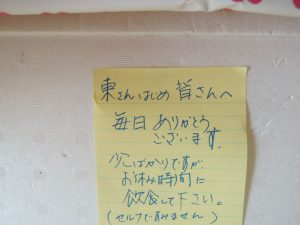 東さんはじめ 皆さんへ
毎日 ありがとう
ございます.
少しばかりですが、
お休み時間に
飲食して下さい。
(セルフですみません)